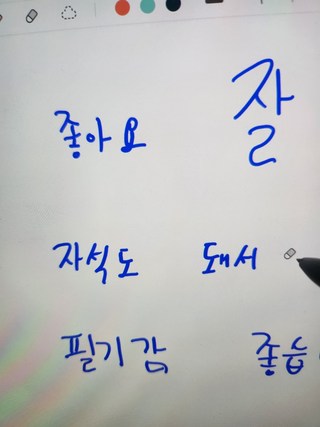 좋아요 잘
자석도 돼서
필기감 좋습